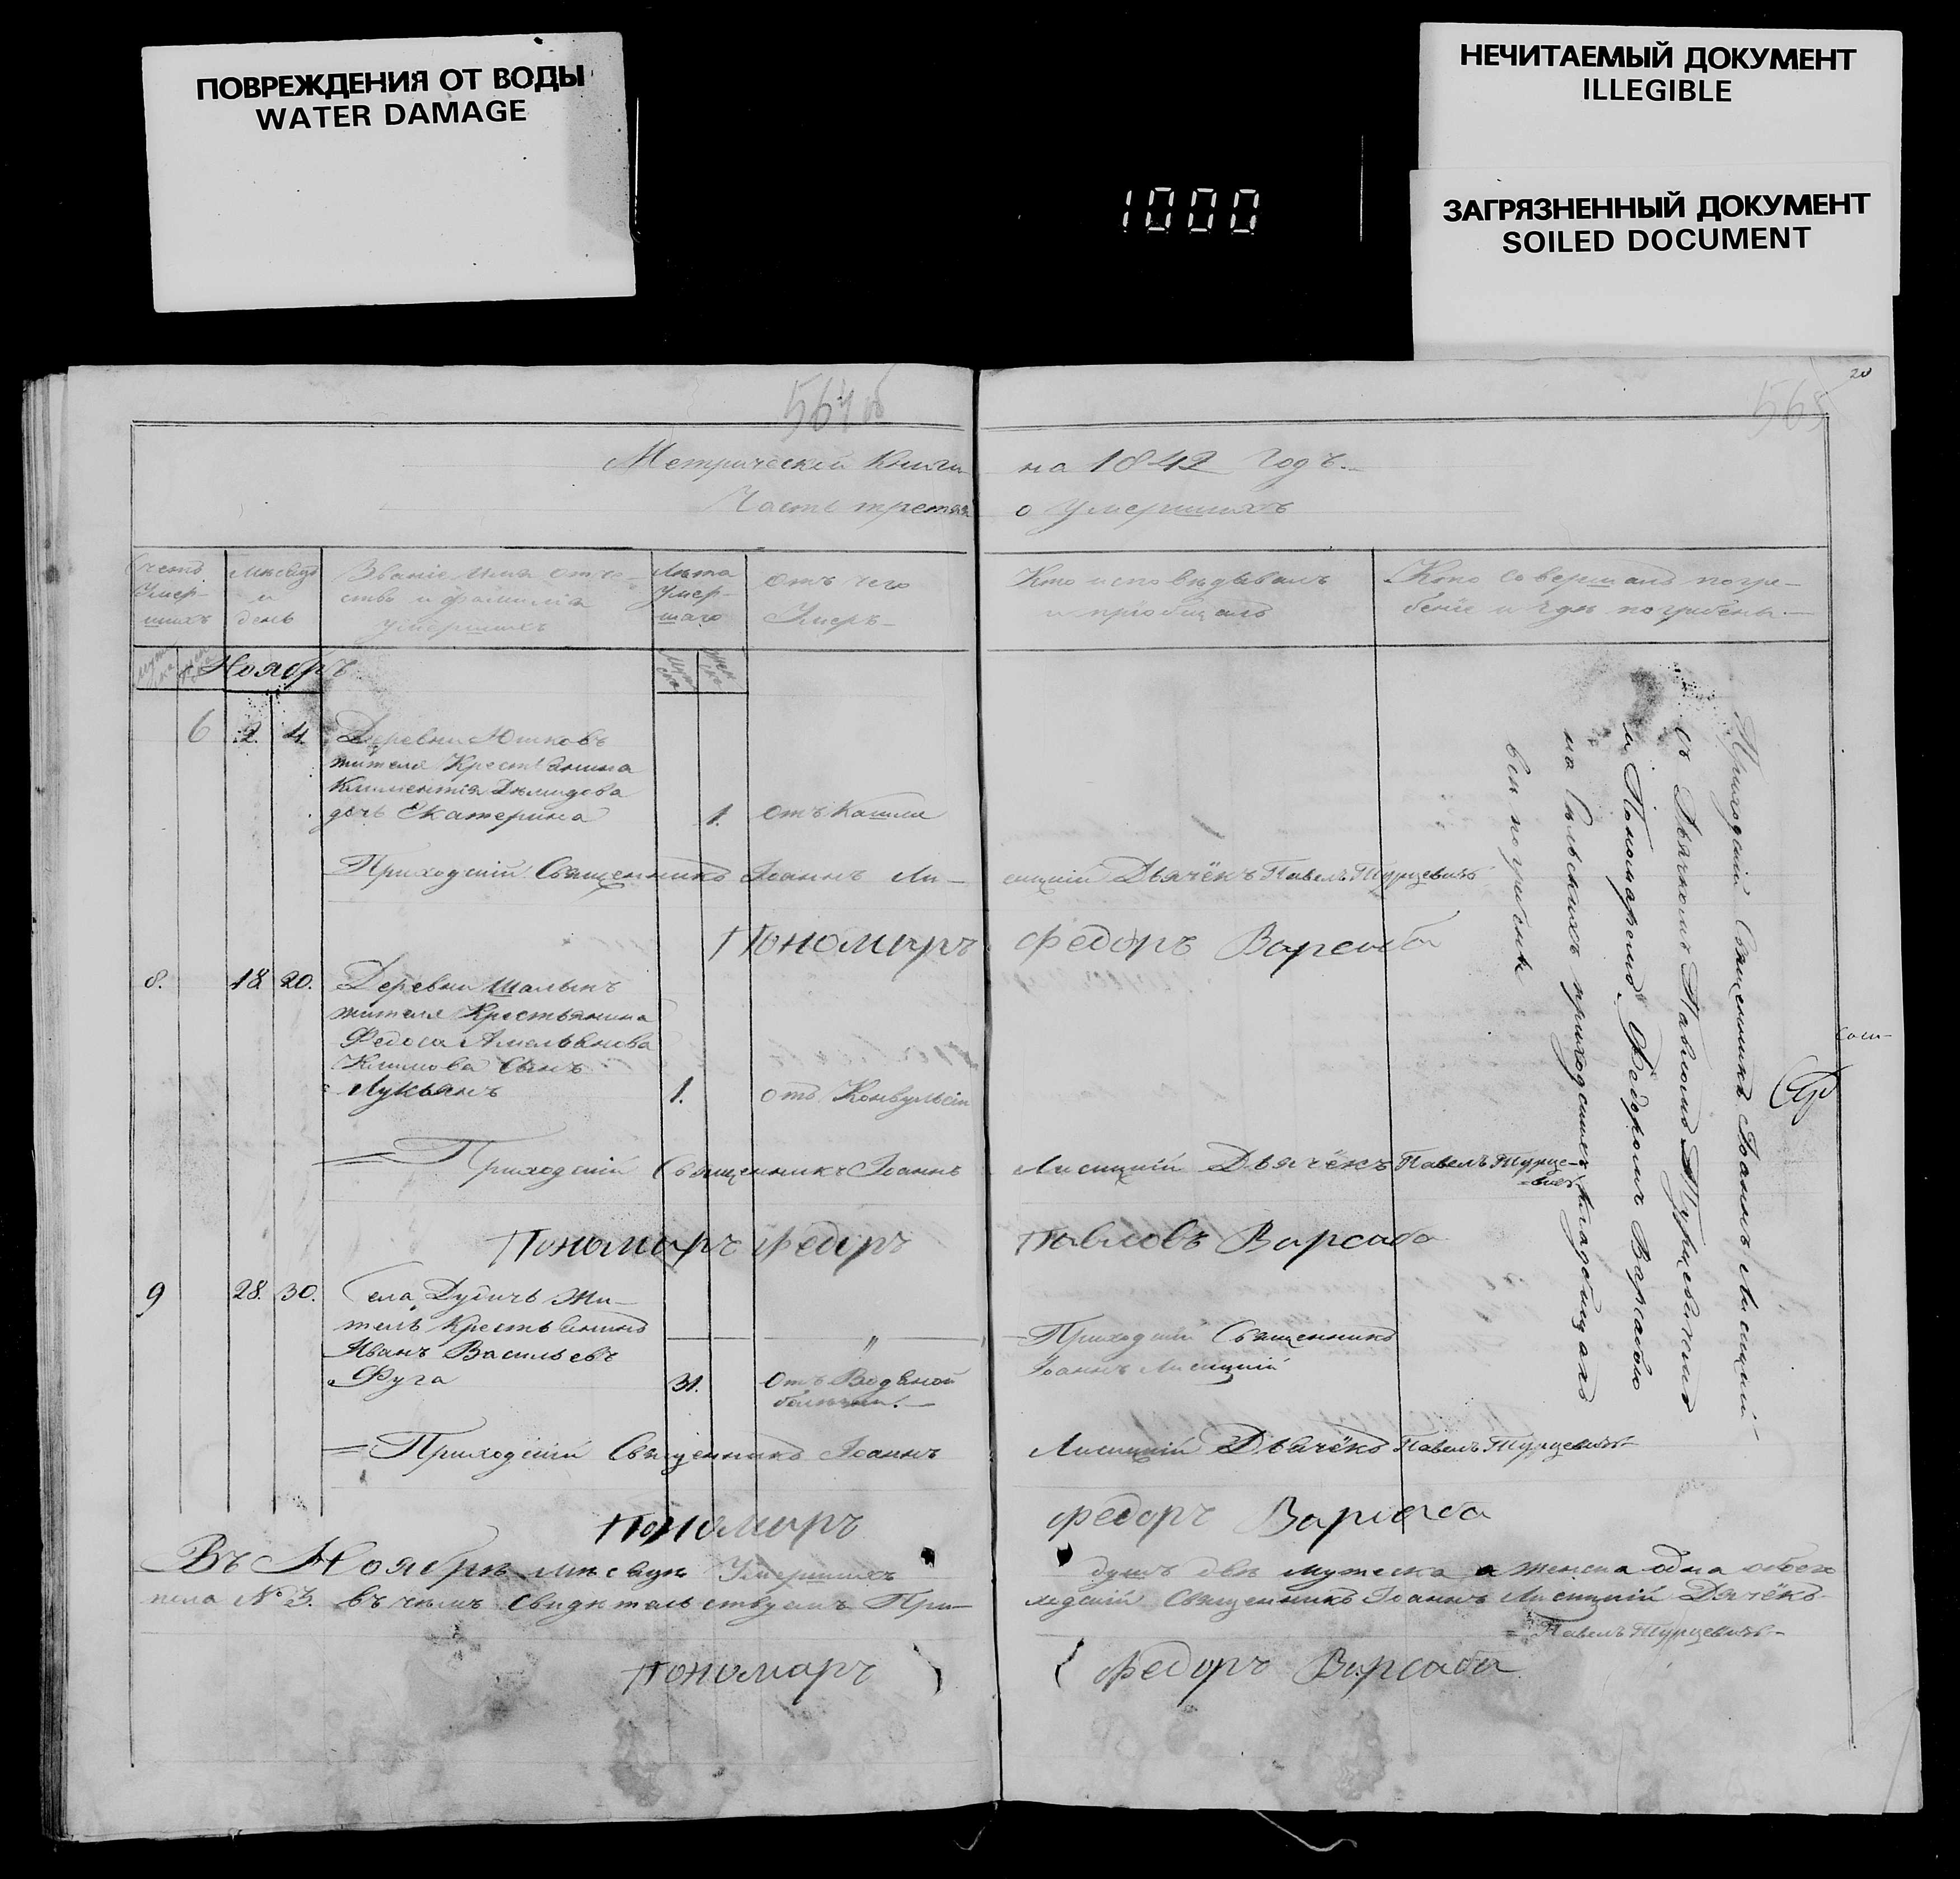 ПОВРЕЖДЕНИЯ ОТ ВОДЫ
WATER DAMAGE
НЕЧИТАЕМЫЙ ДОКУМЕНТ
ILLEGIBLE
ЗАГРЯЗНЕННЫЙ ДОКУМЕНТ
SOILED DOCUMENT
1000
20
564 об
565
Метрической книги на 1842 годъ.
Часть третья о умершихъ
Счетъ умер-шихъ
Мѣсяцъ и день
Званіе имя отче-
ство и фамилія
умершихъ
Лѣта умер-шаго
отъ чего
умеръ
Кто исповѣдывалъ
и пріобщалъ
Кто совершалъ погре-
беніе и гдѣ погребены.
Ноябрь
6 2. 4. Деревни Юшковъ
жителя Крестьянина
Климентія Демидова
дочь Екатерина 1. отъ Кашля
Приходскій Священникъ Іоаннъ Ли- сицкій Дьячёкъ Павелъ Турцевичъ
Пономарь Федоръ Варсаба
8. 18 20. Деревни Шалынъ
жителя Крестьянина
Федоса Амельянова
Климова Сынъ
Лукьянъ 1. отъ Конвульсіи
Приходскій Священникъ Іоаннъ Лисицкій Дьячёкъ Павелъ Турце-
вичъ
Пономарь Федоръ Павловъ Варсаба
9 28. 30. Села Дубичъ Жи-
тель Крестьянинъ
Иванъ Васильевъ
Фуга 31. Отъ Водяной
болѣзни.
Приходскій Священникъ
Іоаннъ Лисицкій
Приходскій Священникъ Іоаннъ Лисицкій Дьячёкъ Павелъ Турцевичъ
Пономарь Федоръ Варсаба
Приходскій Священникъ Іоаннъ Лисицкій
съ Дьячкомъ Павломъ Турцевичемъ
и Пономаремъ Федоромъ Варсабою
на сельскихъ приходскихъ кладбищахъ
всѣ погребены
Въ Ноябрѣ мѣсяцѣ Умершихъ душъ двѣ мужеска а женска одна обоего
пола № 3. въ чемъ свидѣтельствуемъ При- ходскій Священникъ Іоаннъ Лисицкій Дячёкъ
Павелъ Турцевичъ
Пономарь Федоръ Варсаба